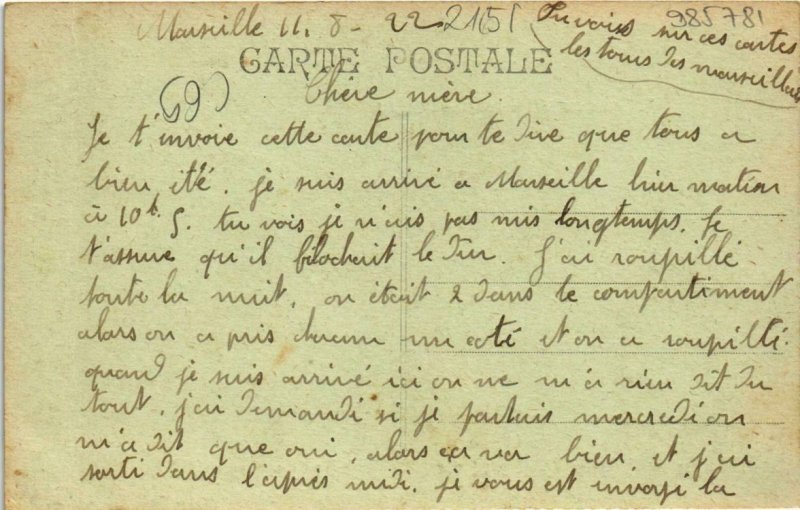 Marseille 11. 8 - 22
2151
985781
Tu vois sur ces cartes
les tours des marseillais
CARTE POSTALE
(59)
Chère mère.
Je t'envoie cette carte pour te dire que tous a
bien été. je suis arrivé a Marseille hier mation
à 10h 5. tu vois je n'ais pas mis longtemps. Je
t'assure qu'il filochait le dur. J'ai roupillé
toute la nuit, on était 2 dans le compartiment
alors on a pris chacun un coté et on a roupillé.
quand je suis arrivé ici on ne m'a rien dit du
tout, j'ai demandé si je partais mercredi on
m'a dit que oui, alors ça va bien, et j'ai
sorti dans l'après midi. je vous est invoyé la